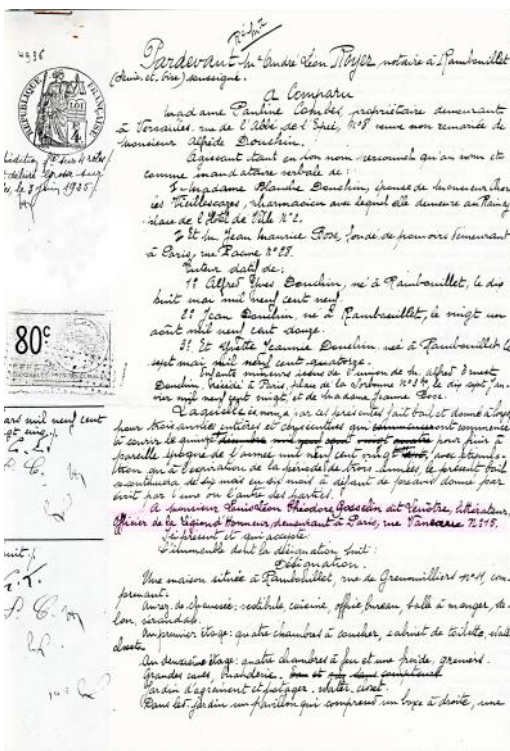 4936
Pardevant Me André Léon Royer, notaire à Rambouillet
(Seine-et-Oise) soussigné.
A Comparu
Madame Pauline Combes, propriétaire demeurant
à Versailles, rue de l'Abbé de l'Epée, N°8 veuve non remariée de
Monsieur Alfred Douchin.
Agissant tant en son nom personnel qu'au nom et
comme mandataire verbale de:
1° Madame Blandine Douchin, épouse de Monsieur
Vieillescazes, pharmacien avec lequel elle demeure au Raincy
place de l'Hôtel de Ville N°2.
2° Et M. Jean Maurice Bose, fondé de pouvoirs demeurant
à Paris, rue Racine N°28.
Tuteur datif de:
1° Alfred Yves Douchin, né à Rambouillet, le dix
huit mai mil neuf cent neuf.
2° Jean Douchin, né à Rambouillet, le vingt un
août mil neuf cent douze.
3° Et Jeannie Douchin, née à Rambouillet le
sept mai mil neuf cent quatorze.
Enfants mineurs issus de l'union de M. Alfred Ernest
Douchin, décédé à Paris, place de la Sorbonne N°3, le dix sept jan-
vier mil neuf cent vingt, et de Madame Jeanne Bose.
Laquelle es noms a par ces présentes fait bail et donné à loyer
pour trois années entières et consécutives qui commenceront
à courir le quinze pour finir à
pareille époque de l'année mil neuf cent vingt
qu'à l'expiration de la période de trois années, le présent bail
continuera de six mois en six mois à défaut de préavis donné par
écrit par l'une ou l'autre des parties.
A Monsieur Louis Léon Théodore Gosselin dit Lenôtre, littérateur,
Officier de la Légion d'Honneur, demeurant à Paris, rue Vaneau N°15.
Ici présent et qui accepte:
L'immeuble dont la désignation suit:
Désignation.
Une maison située à Rambouillet, rue de Groussay N°11, com-
prenant:
Au rez de chaussée: vestibule, cuisine, office bureau, salle à manger, sa-
lon, véranda.
Au premier étage: quatre chambres à coucher, cabinet de toilette, water
closets.
Au deuxième étage: quatre chambres à feu et une froide, greniers.
Grandes caves, buanderie.
Jardin d'agrément et potager. water, closet.
Dans led. jardin un pavillon qui comprend un boxe à droite, une
RÉPUBLIQUE
le 3 juin 1925
80c
mil neuf cent